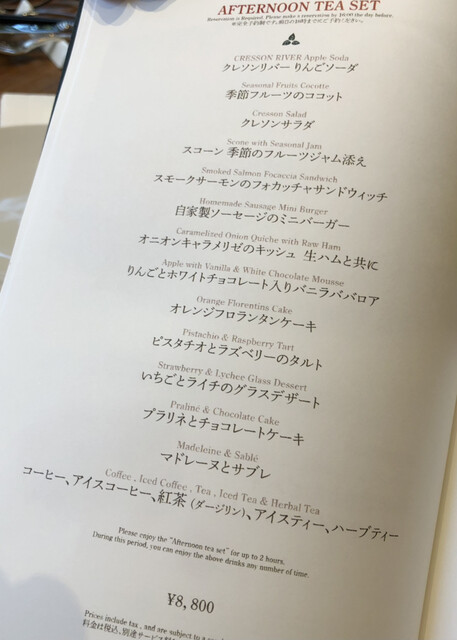 AFTERNOON TEA SET
Reservation is Required. Please make a reservation by 16:00 the day before.
CRESSON RIVER Apple Soda
クレソンリバー りんごソーダ
Seasonal Fruits Cocotte
季節フルーツのココット
Cresson Salad
クレソンサラダ
Scone with Seasonal Jam
スコーン 季節のフルーツジャム添え
Smoked Salmon Focaccia Sandwich
スモークサーモンのフォカッチャサンドウィッチ
Homemade Sausage Mini Burger
自家製ソーセージのミニバーガー
Caramelized Onion Quiche with Raw Ham
オニオンキャラメリゼのキッシュ 生ハムと共に
Apple with Vanilla & White Chocolate Mousse
りんごとホワイトチョコレート入りバニラババロア
Orange Florentins Cake
オレンジフロランタンケーキ
Pistachio & Raspberry Tart
ピスタチオとラズベリーのタルト
Strawberry & Lychee Glass Dessert
いちごとライチのグラスデザート
Praliné & Chocolate Cake
プラリネとチョコレートケーキ
Madeleine & Sablé
マドレーヌとサブレ
Coffee , Iced Coffee , Tea , Iced Tea & Herbal Tea
コーヒー、アイスコーヒー、紅茶 (ダージリン)、アイスティー、ハーブティー
Please enjoy the "Afternoon tea set" for up to 2 hours.
During this period, you can enjoy the above drinks any number of time.
¥8,800
Prices include tax , and are subject to a
料金は税込、別途サービス料